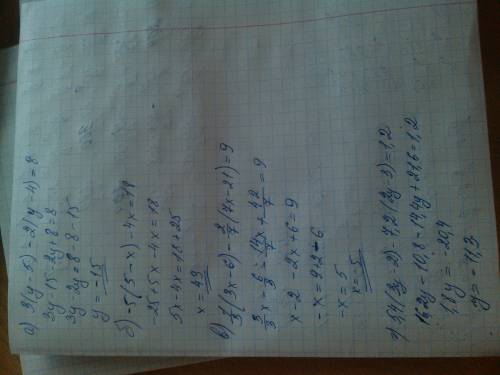 а) 3(y-5)-2(y-4)=8
3y-15-2y+8=8
3y-2y=8-8-15
y=-15
б) -5(5-x)-4x=18
-25+5x-4x=18
5x-4x=18+25
x=43
в) 1/3(3x-6)-2/7(7x-21)=9
3/3x-6/3-14/7x+42/7=9
x-2-2x+6=9
-x=9+2-6
-x=5
x=-5
г) 5,4(3y-2)-7,2(2y-3)=1,2
16,2y-10,8-14,4y+21,6=1,2
1,8y=-20,4
y=-11,3